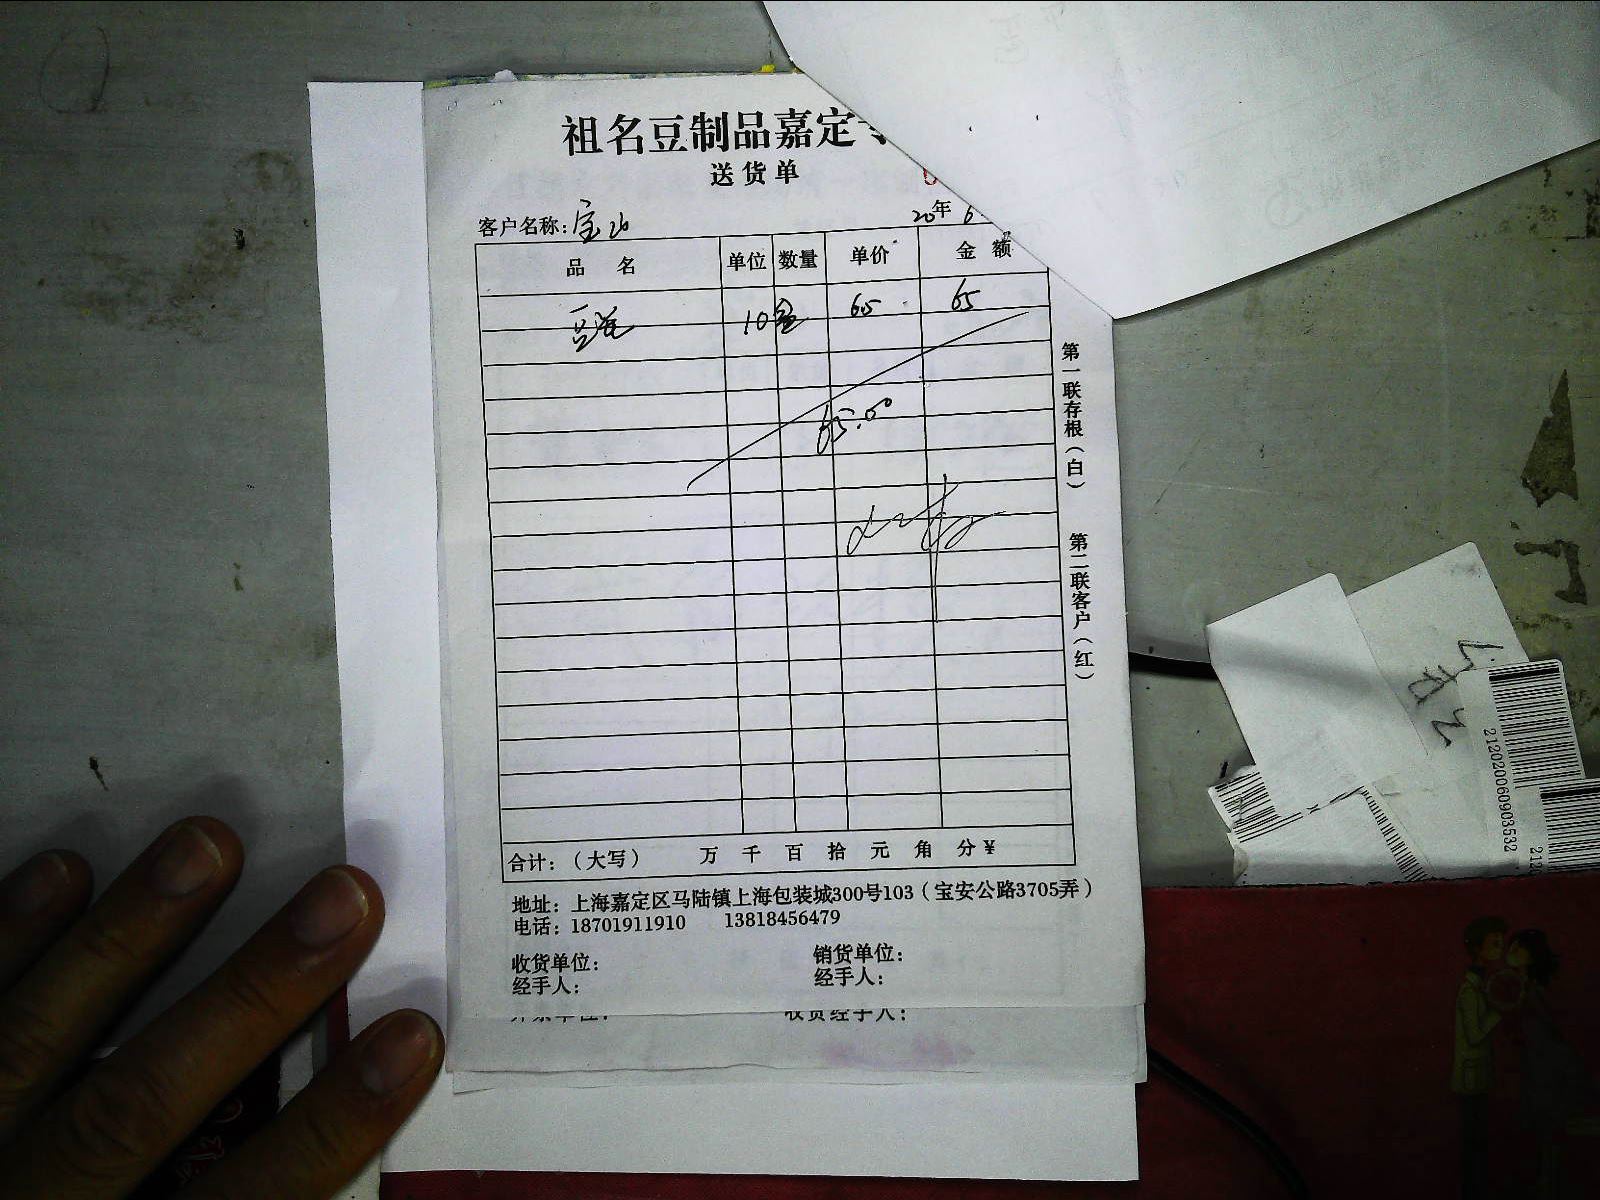 祖名豆制品嘉定
送货单
客户名称：宝山
20年 6
品 名 单位 数量 单价 金 额
10 65 65
65.00
第一联存根（白）
第二联客户（红）
合计：（大写） 万 千 百 拾 元 角 分￥
地址：上海嘉定区马陆镇上海包装城300号103（宝安公路3705弄）
电话：18701911910 13818456479
收货单位： 销货单位：
经手人： 经手人：
收货经手人：
212020060903532